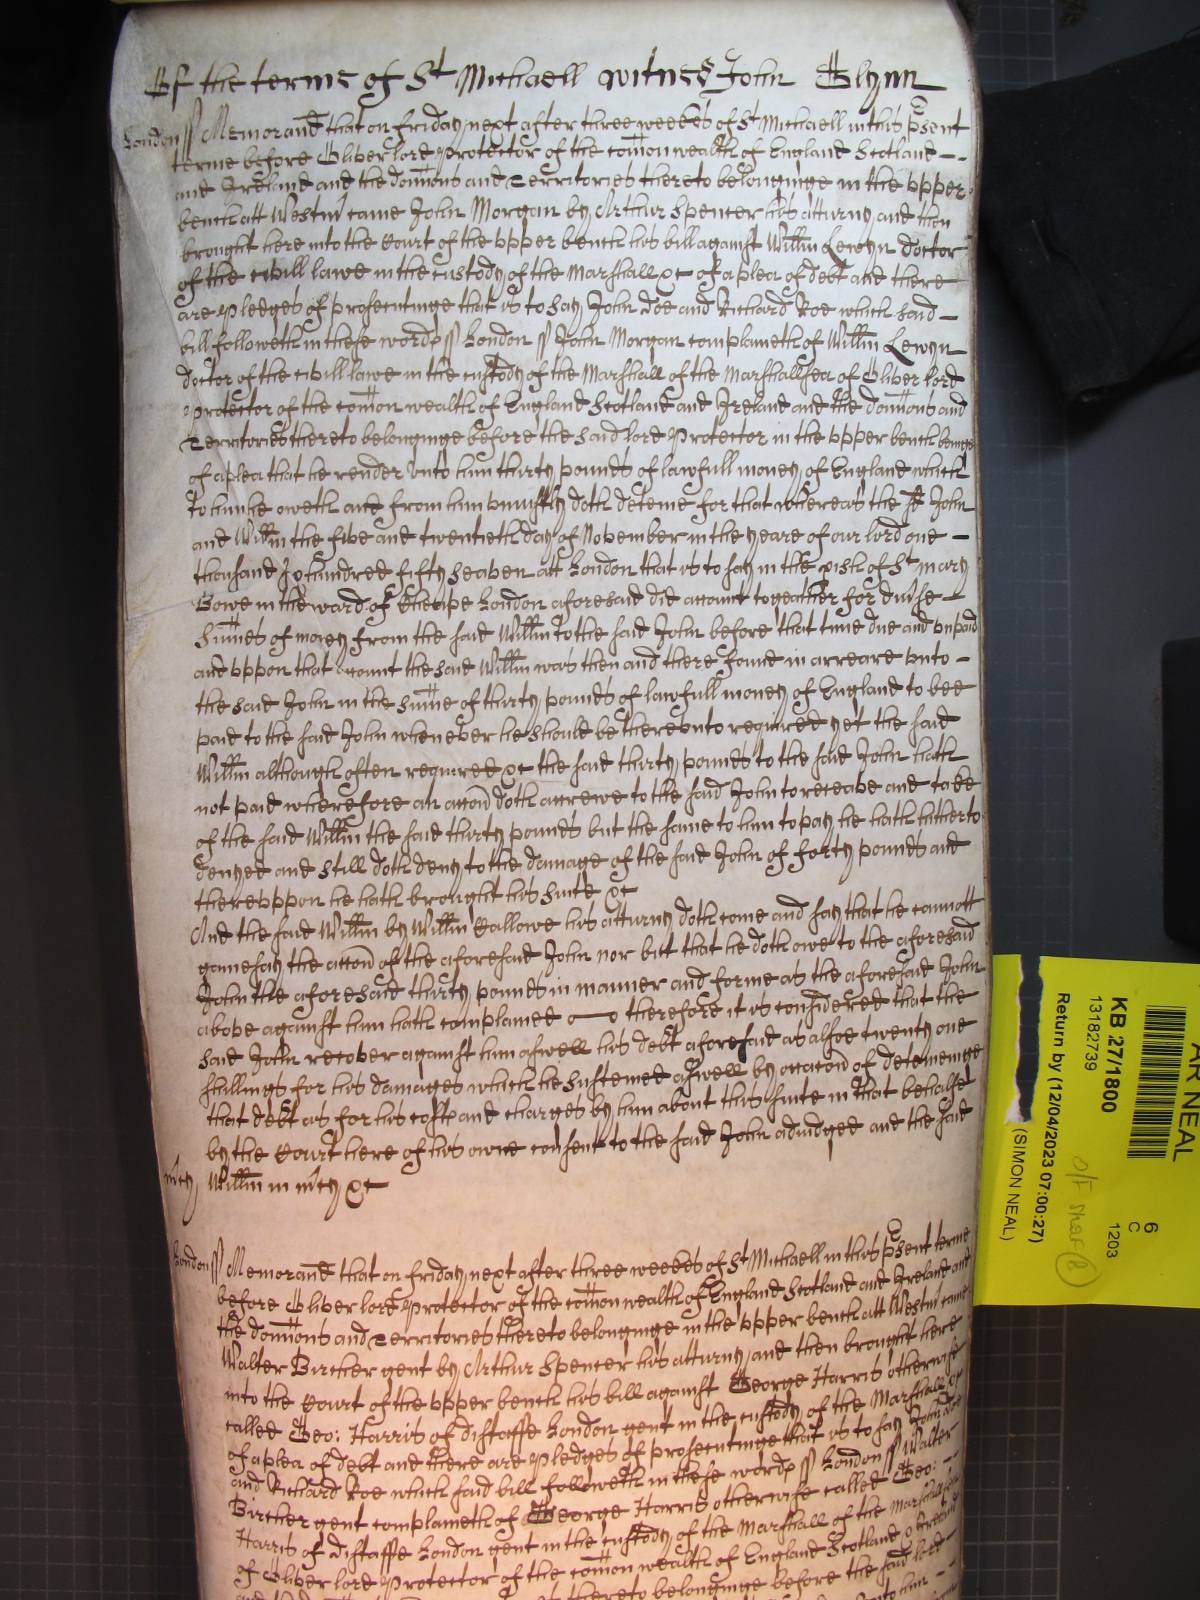 Of the terme of St Michaell witnes John Glynn
London ss Memorand that on friday next after three weekes of St Michaell in this psent
terme before Oliver lord Protector of the comon wealth of England Scotland
and Ireland and the domions and Territories thereto belonginge in the vpper
bench att Westm came John Morgan by Arthur Spencer his atturny and then
brought here into the Court of the vpper bench his bill against Willm Lewyn doctor
of the civill lawe in the custody of the Marshall &c of a plea of debt and there
are pledges of prosecutinge that is to say John Doe and Richard Roe which said
bill followeth in these words ss London ss John Morgan complaineth of Willm Lewyn
doctor of the civill lawe in the custody of the Marshall of the Marshallsea of Oliver lord
Protector of the comon wealth of England Scotland and Ireland and the domions and
Territories thereto belonginge before the said lord Protector in the vpper bench beinge
of a plea that he render vnto him thirty pounds of lawfull money of England which
to him he oweth and from him vniustly doth deteine for that whereas the sd John
and Willm the five and twentieth day of November in the yeare of our lord one
thousand six hundred fifty seaven att London that is to say in the pish of St mary
Bowe in the ward of Cheape London aforesaid did accompt togeather for divse
Summes of money from the said Willm to the said John before that time due and vnpaid
and vppon that accompt the said Willm was then and there found in arreare vnto
the said John in the summe of thirty pounds of lawfull money of England to bee
paid to the said John whenever he should be therevnto required yet the said
Willm although often required &c the said thirty pounds to the said John hath
not paid wherefore an accon doth accrewe to the said John to receave and to have
of the said Willm the said thirty pounds but the same to him to pay he hath hitherto
denyed and still doth deny to the damage of the said John of forty pounds and
therevppon he hath brought his suite &c
And the said Willm by Willm Gallowe his atturny doth come and say that he cannott
gainesay the accon of the aforesaid John nor but that he doth owe to the aforesaid
John the aforesaid thirty pounds in manner and forme as the aforesaid John
above against him hath complained therefore it is considered that the
said John recover against him aswell his debt aforesaid as alsoe twenty one
shillings for his damages which he susteined aswell by occacon of deteineinge
that debt as for his costs and charges by him about his suite in that behalfe
by the Court here of his owne consent to the said John adiudged and the said
mcy Willm in mcy &c
London ss Memorand that on friday next after three weekes of St Michaell in this psent terme
before Oliver lord Protector of the comon wealth of England Scotland and Ireland and
the domions and Territories thereto belonginge in the vpper bench att Westm came
Walter Bircher gent by Arthur Spencer his atturny and then brought here
into the Court of the vpper bench his bill against George Harris otherwise
called Geo: Harris of London gent in the custody of the Marshall &c
of a plea of debt and there are pledges of prosecutinge that is to say John Doe
and Richard Roe which said bill followeth in these words ss London ss Walter
Bircher gent complaineth of George Harris otherwise called Geo:
Harris of London gent in the custody of the Marshall of the Marshallsea
of Oliver lord Protector of the comon wealth of England Scotland & Ireland
thereto belonginge before the said lord
AR NEAL
KB 27/1800
13182739
Return by (12/04/2023 07:00:27)
(SIMON NEAL)
6
C
1203